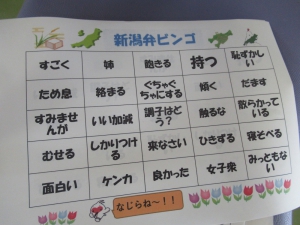 新潟弁ビンゴ
すごく 姉 飽きる 持つ 恥ずかしい
ため息 絡まる ぐちゃぐちゃにする 傾く だます
すみませんが いい加減 調子はどう? 触るな 散らかっている
むせる しかりつける 来なさい ひきずる 寝そべる
面白い ケンカ 良かった 女子衆 みっともない
なじらね～!!